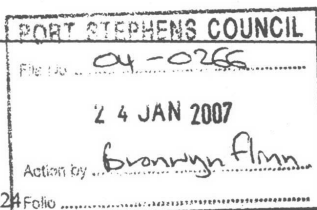 PORT STEPHENS COUNCIL
File No. 04-0266
24 JAN 2007
Action by Bronwyn Flinn
24 Folio